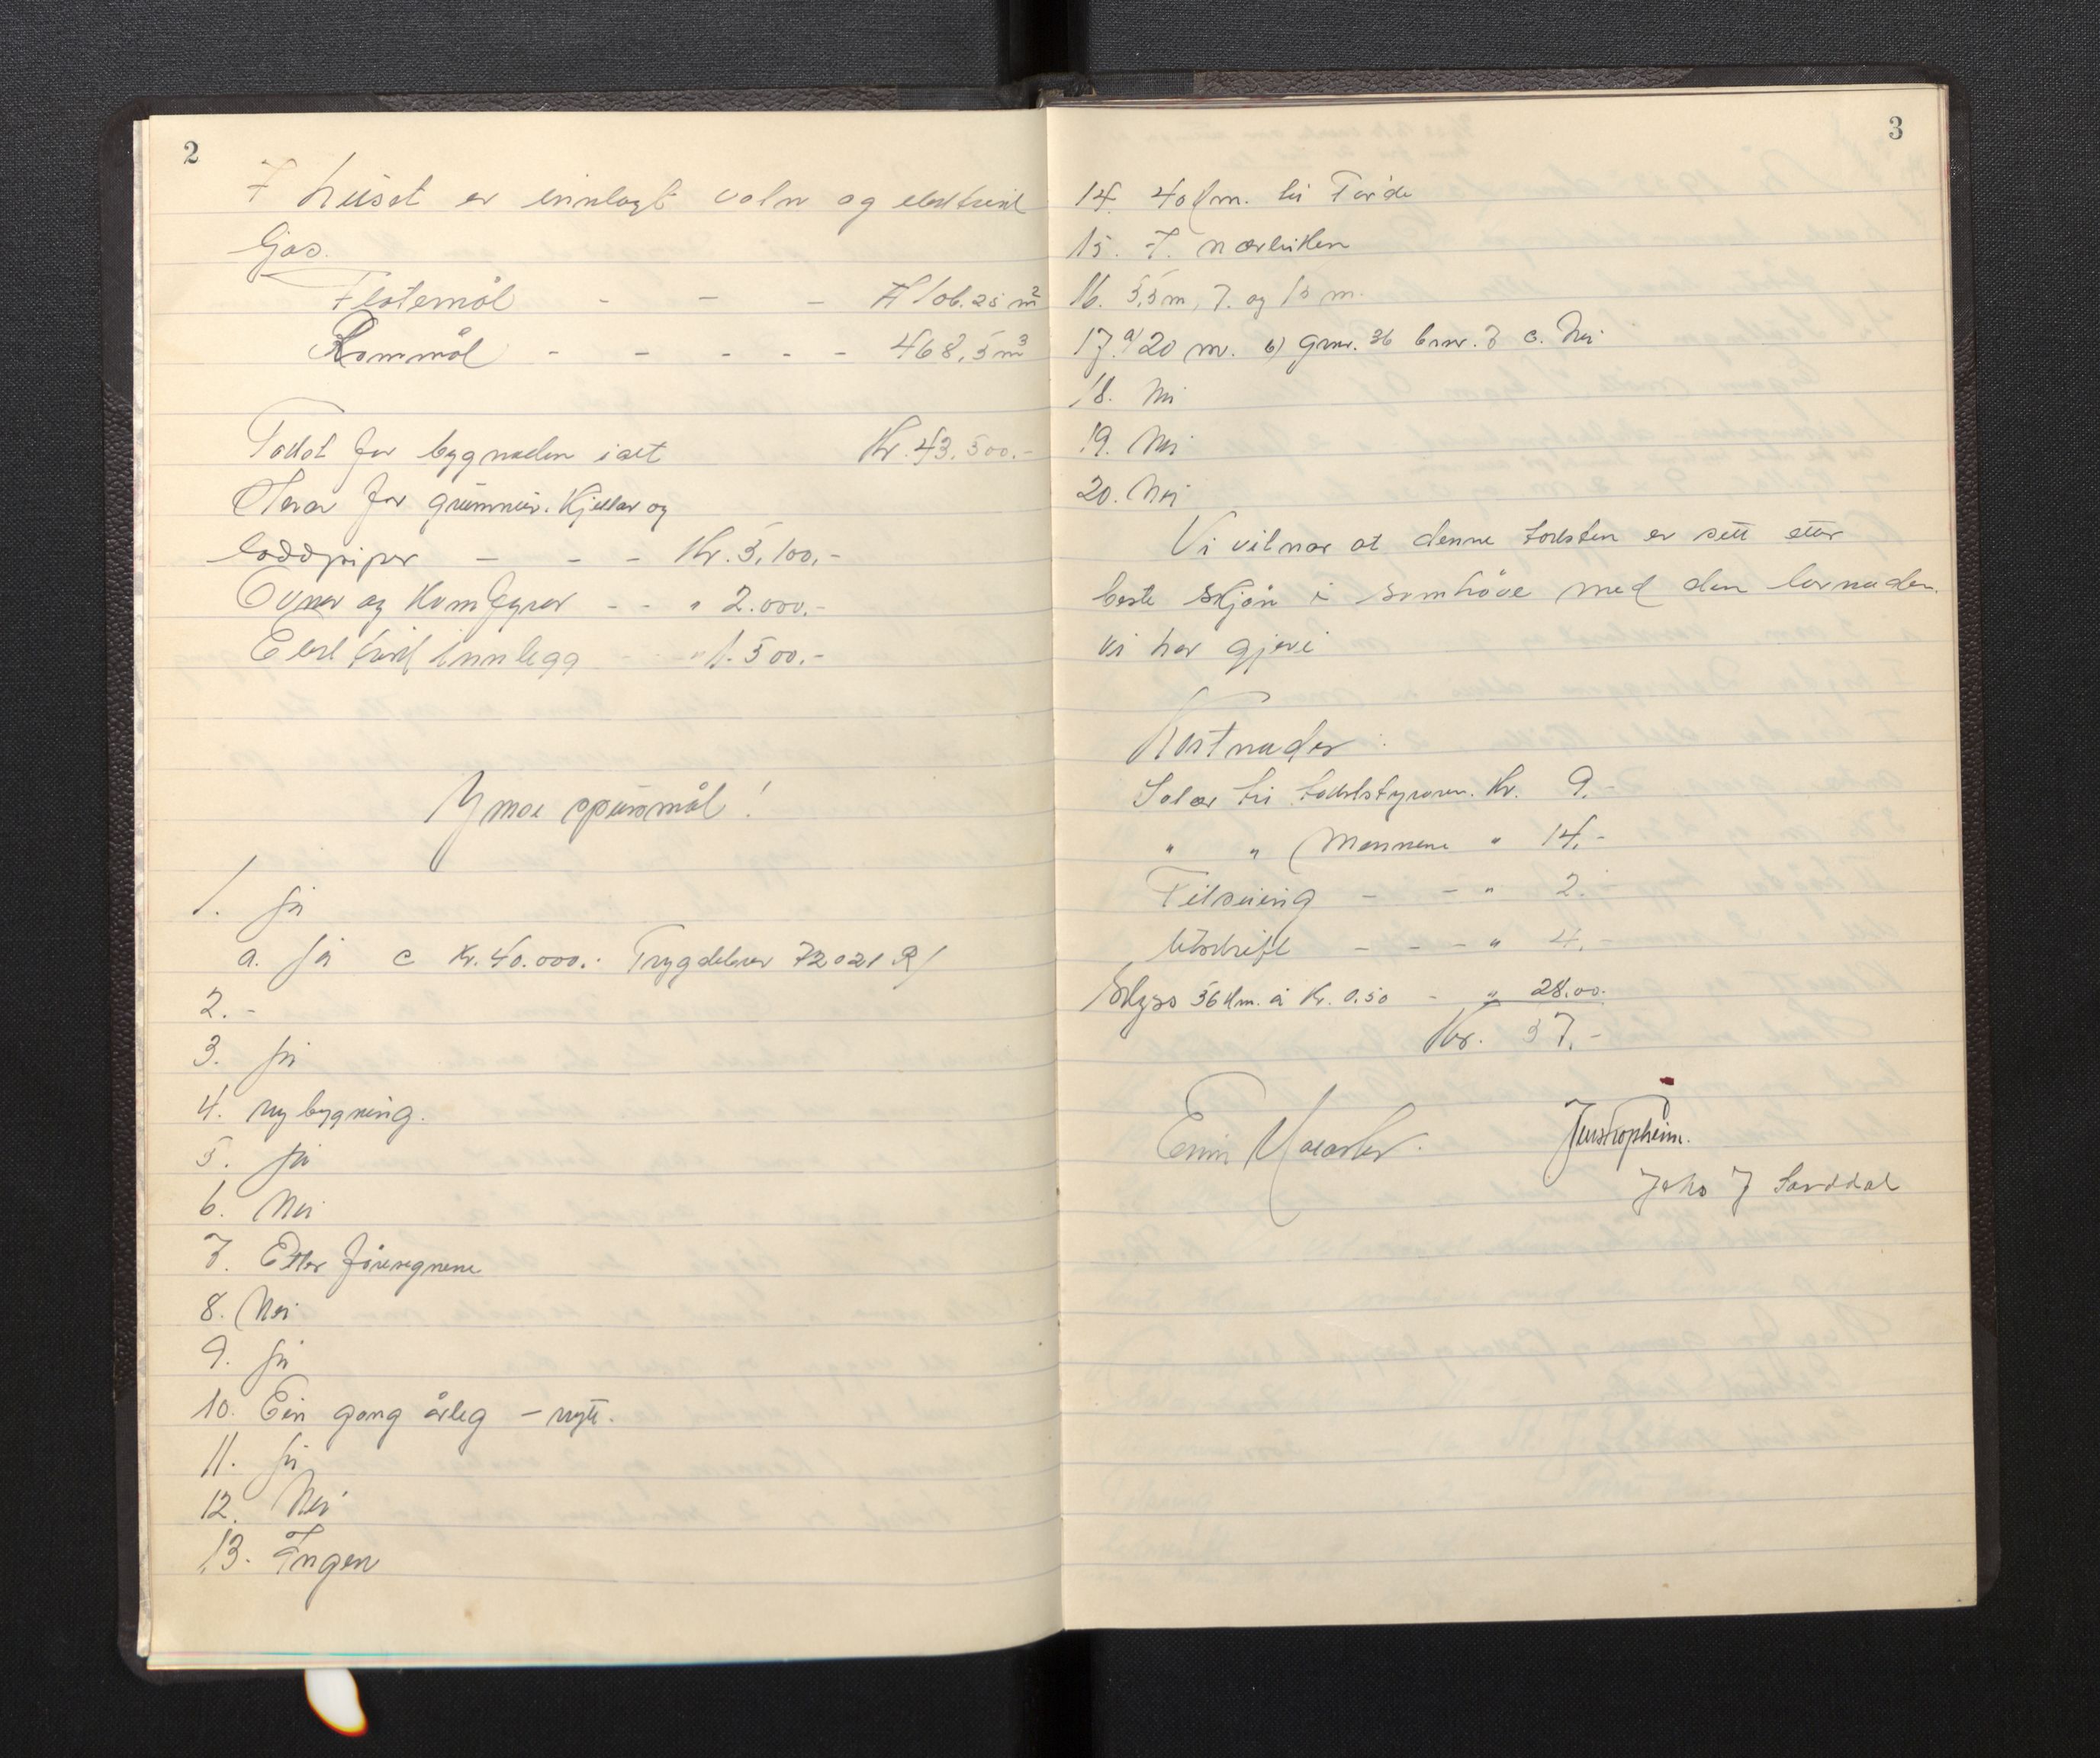 2
I huset er innlagt vatn og elektrisk
ljos.
Flatemål - - - 106.25 m²
Rommål - - - - - 468,5 m³
Takst for bygnaden i alt Kr. 43.500.-
Herav for grunnmur. Kjellar og
loddpipor - - - Kr. 5.100.-
Ovner og Komfyrer - - " 2.000.-
Elektrisk innlegg - - " 1.500.-
Ymse spursmål!
1. ja
a. ja c Kr. 40.000.- Trygdebrev 72021 R/
2. -
3. ja
4. nybygning.
5. ja
6. Nei
7. Etter fyresegnene
8. Nei
9. ja
10. Ein gong årleg - nytt.
11. ja
12. Nei
13. Ingen
3
14. 40 km. til Førde
15. I nærleiken
16. 5,5 m, 7. og 15 m.
17. a/ 20 m. b) Gnr. 36 bnr. 7 c. Nei
18. Nei
19. Nei
20. Nei
Vi vitnar at denne taksten er sett etter
beste skjøn i samhøve med den lovnaden
vi har gjeve
Kostnader:
Salær til takststyraren. Kr. 9.-
" " Mennene " 14.-
Tilsuing - - " 2.
Utskrift - - - " 4.-
Skyss 56 km. à Kr. 0.50 - " 28.00.
Kr. 57.-
Jens Hopheim.
J Sanddal